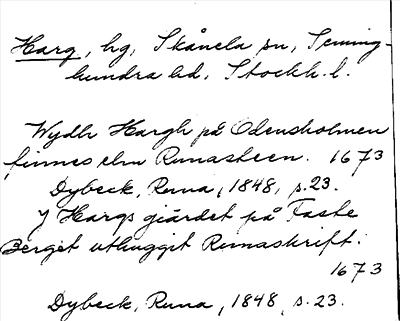 Harg, hg, Skånela sn, Seming-
hundra hd, Stockh. l.
Wydh Hargh på Odensholmen
finnes elm Runasteen. 1673
Dybeck, Runa, 1848, s. 23.
J Hargs giärdet på Faste
Berget uthuggit Runaskrift.
1673
Dybeck, Runa, 1848, s. 23.